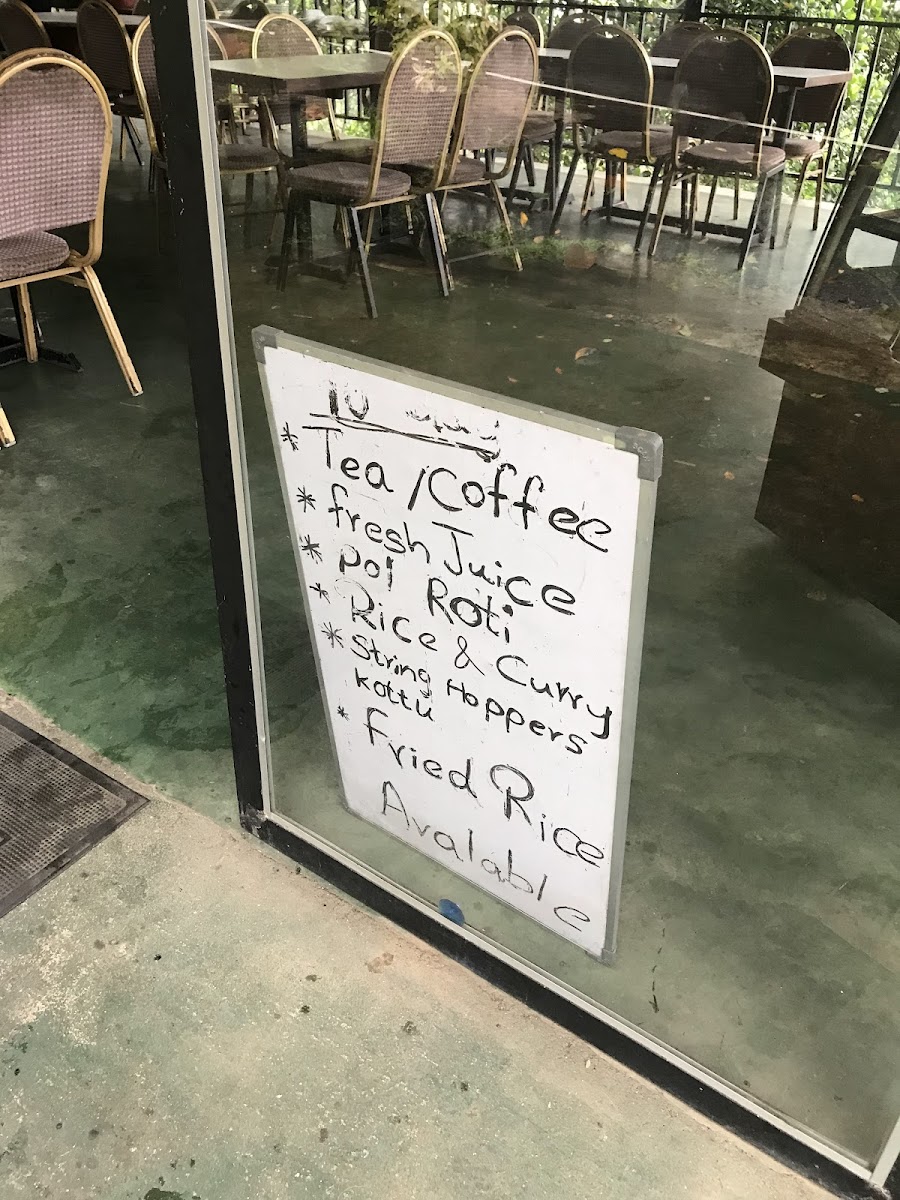 * Tea / Coffee
* fresh Juice
* Pol Roti
* Rice & Curry
* String Hoppers
kottu
* Fried Rice
Avalable